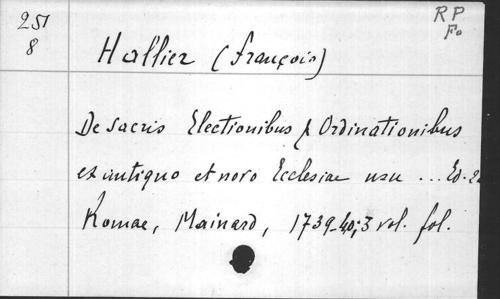 251
8
RP.
Fo
Hallier (François)
De sacris Electionibus & Ordinationibus
ex antiquo et novo Ecclesiae usu ... Ed. 2a
Romae, Mainard, 1739-40; 3 vol. fol.